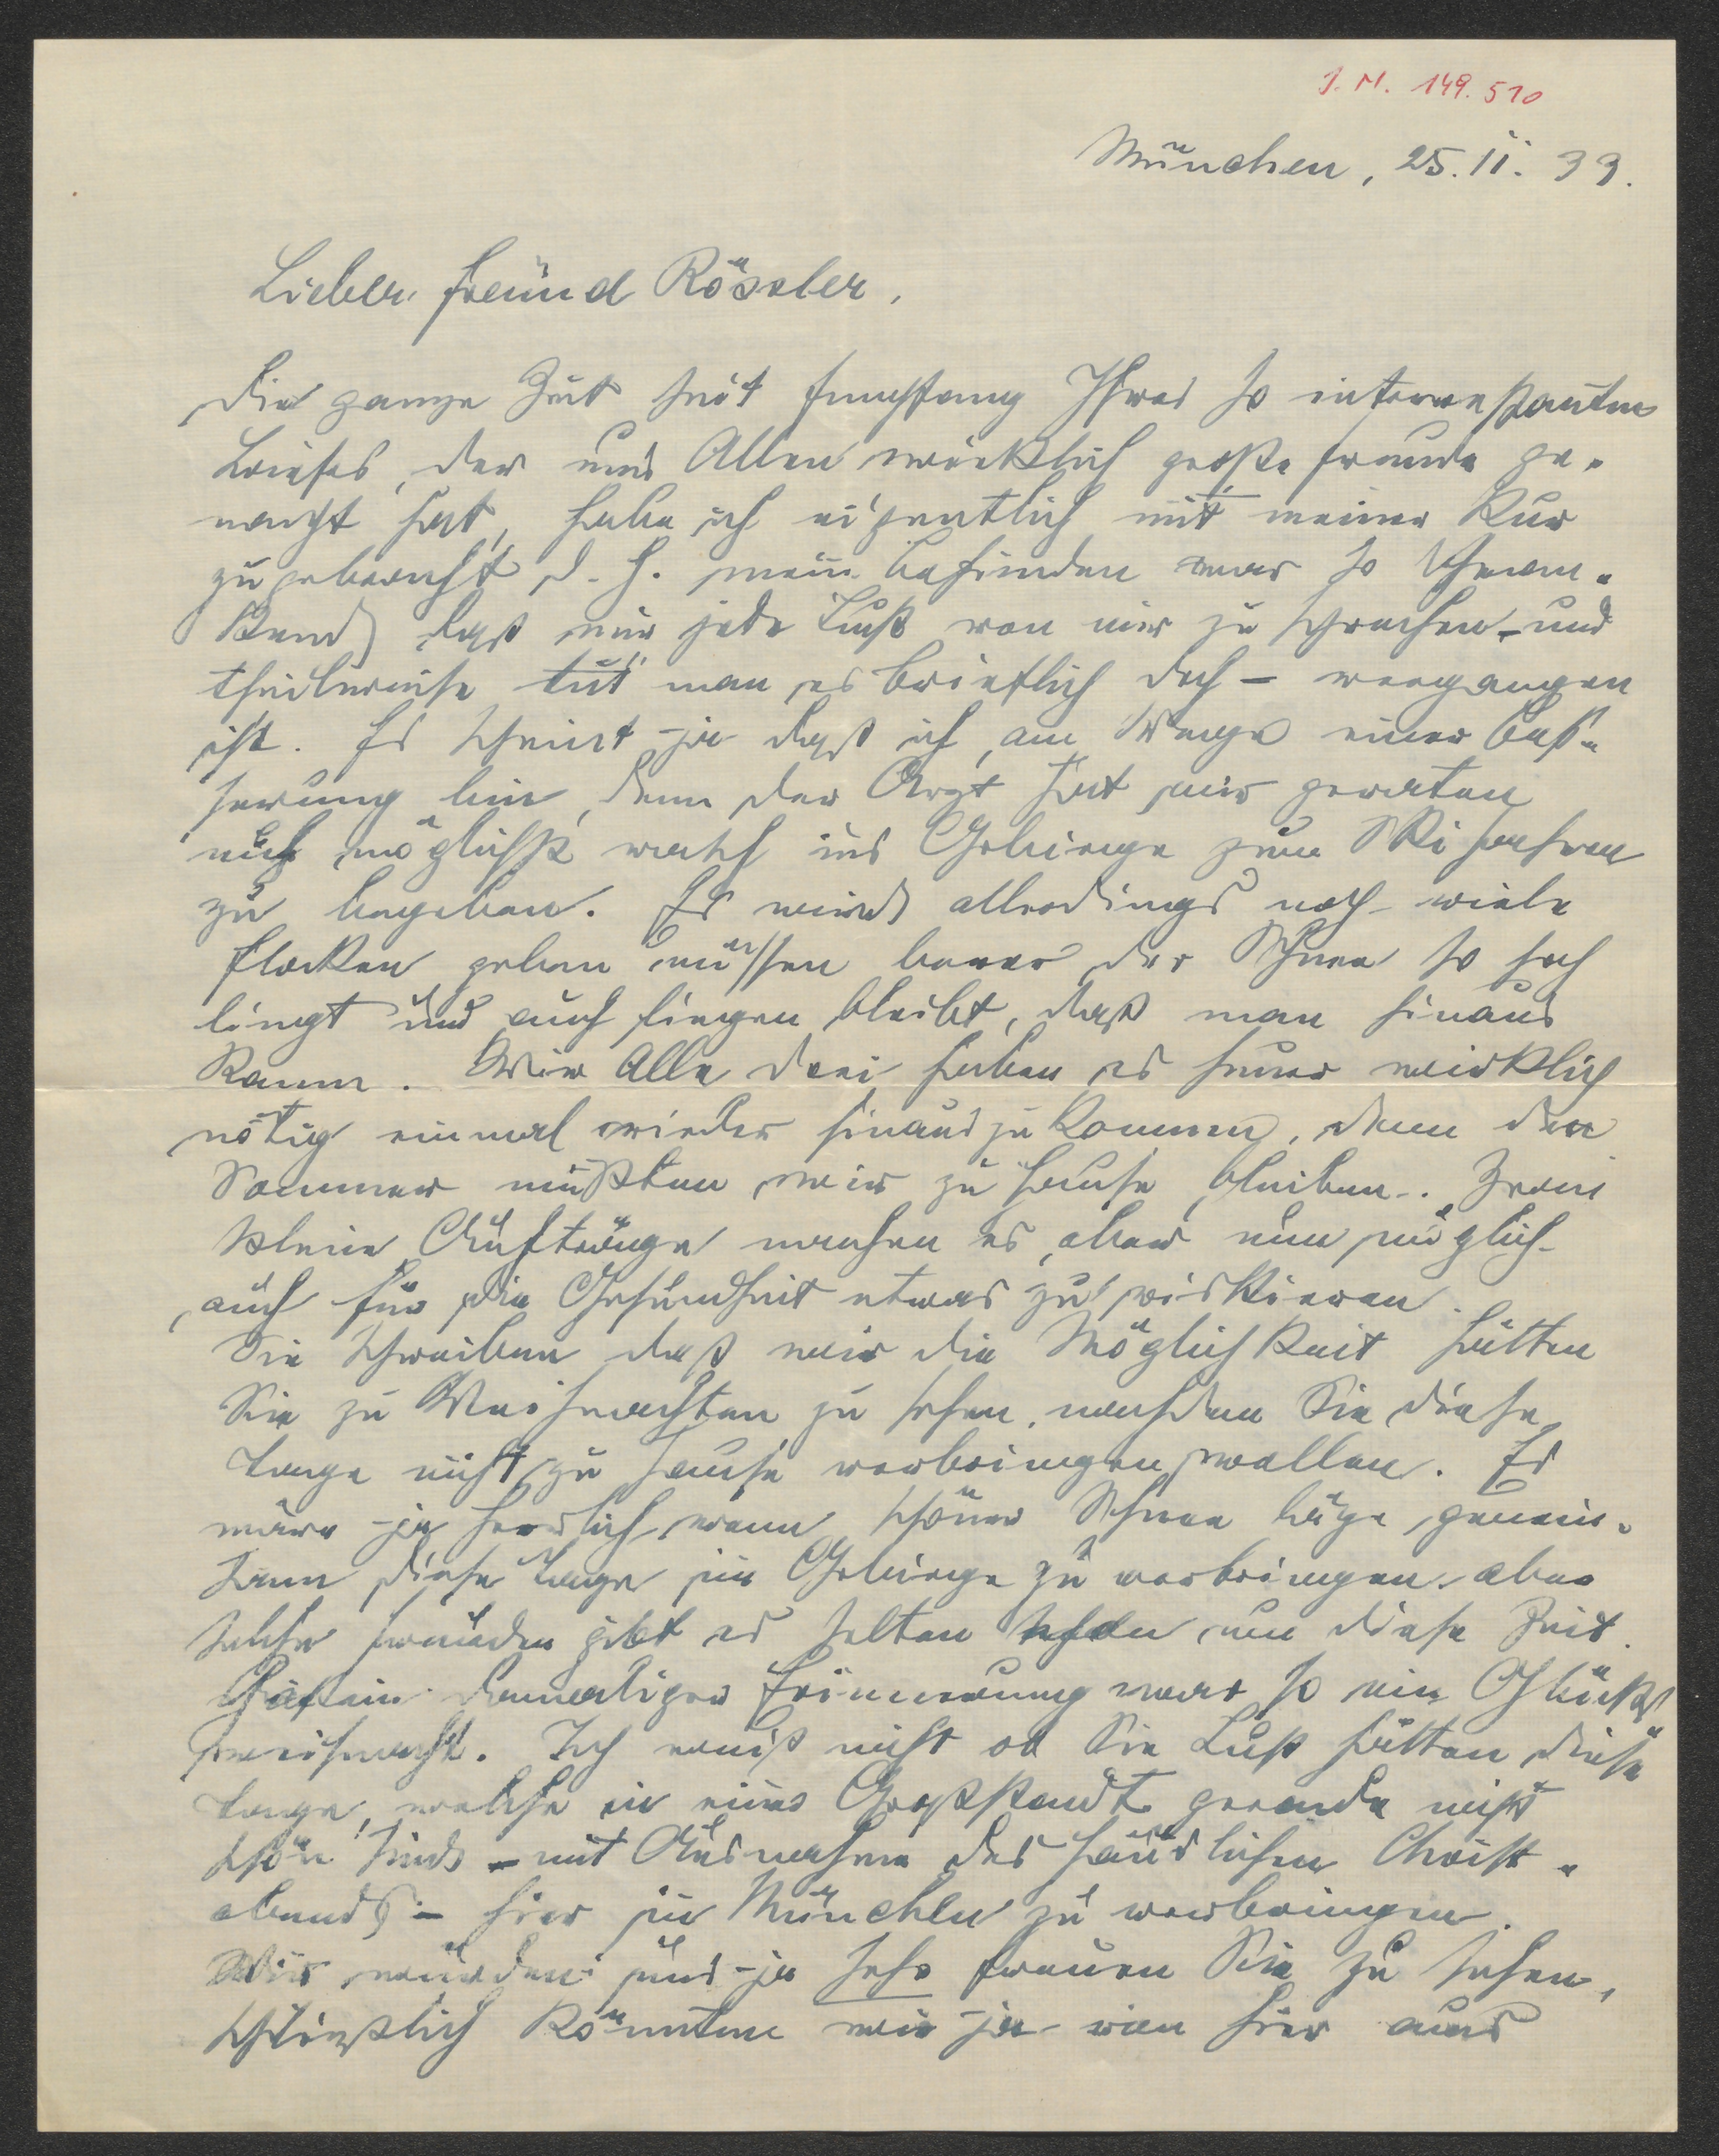 J. N. 149.510
München, 25. 11. 33.
Lieber Freund Rössler,
Die ganze Zeit seit Empfang Ihres so interessanten
Briefes, der uns Allen wirklich große Freude ge-
macht hat, habe ich eigentlich mit meiner Kur
zugebracht d. h. mein Befinden war so schwan-
kend daß mir jede Lust von mir zu sprechen – und
theilweise tut man es brieflich doch – vergangen
ist. Es scheint ja daß ich am Wege einer Bes-
serung bin, denn der Arzt hat mir geraten
mich möglichst rasch ins Gebirge zum Skifahren
zu begeben. Es wird allerdings noch viele
Flocken geben müssen bevor der Schnee so hoch
liegt und auch liegen bleibt, daß man hinaus
kann. Wir Alle drei haben es heuer wirklich
nötig einmal wieder hinaus zu kommen, denn den
Sommer mußten wir zu Hause bleiben. Zwei
kleine Aufträge machen es aber nun möglich
auch für die Gesundheit etwas zu riskieren.
Sie schreiben daß wir die Möglichkeit hätten
Sie zu Weihnachten zu sehen, nachdem Sie diese
Tage nicht zu Hause verbringen wollen. Es
wäre ja herrlich wenn schöner Schnee läge, gemein-
sam diese Tage im Gebirge zu verbringen aber
solche Freuden gibt es selten schon um diese Zeit.
Gastein damaliger Erinnerung war so ein Glücks-
weihnacht. Ich weiß nicht ob Sie Lust hätten diese
Tage, welche in einer Großstadt gerade nicht
schön sind – mit Ausnahme des häuslichen Christ-
abends – hier in München zu verbringen.
Wir würden uns ja sehr freuen Sie zu sehen,
schließlich könnten wir ja von hier aus